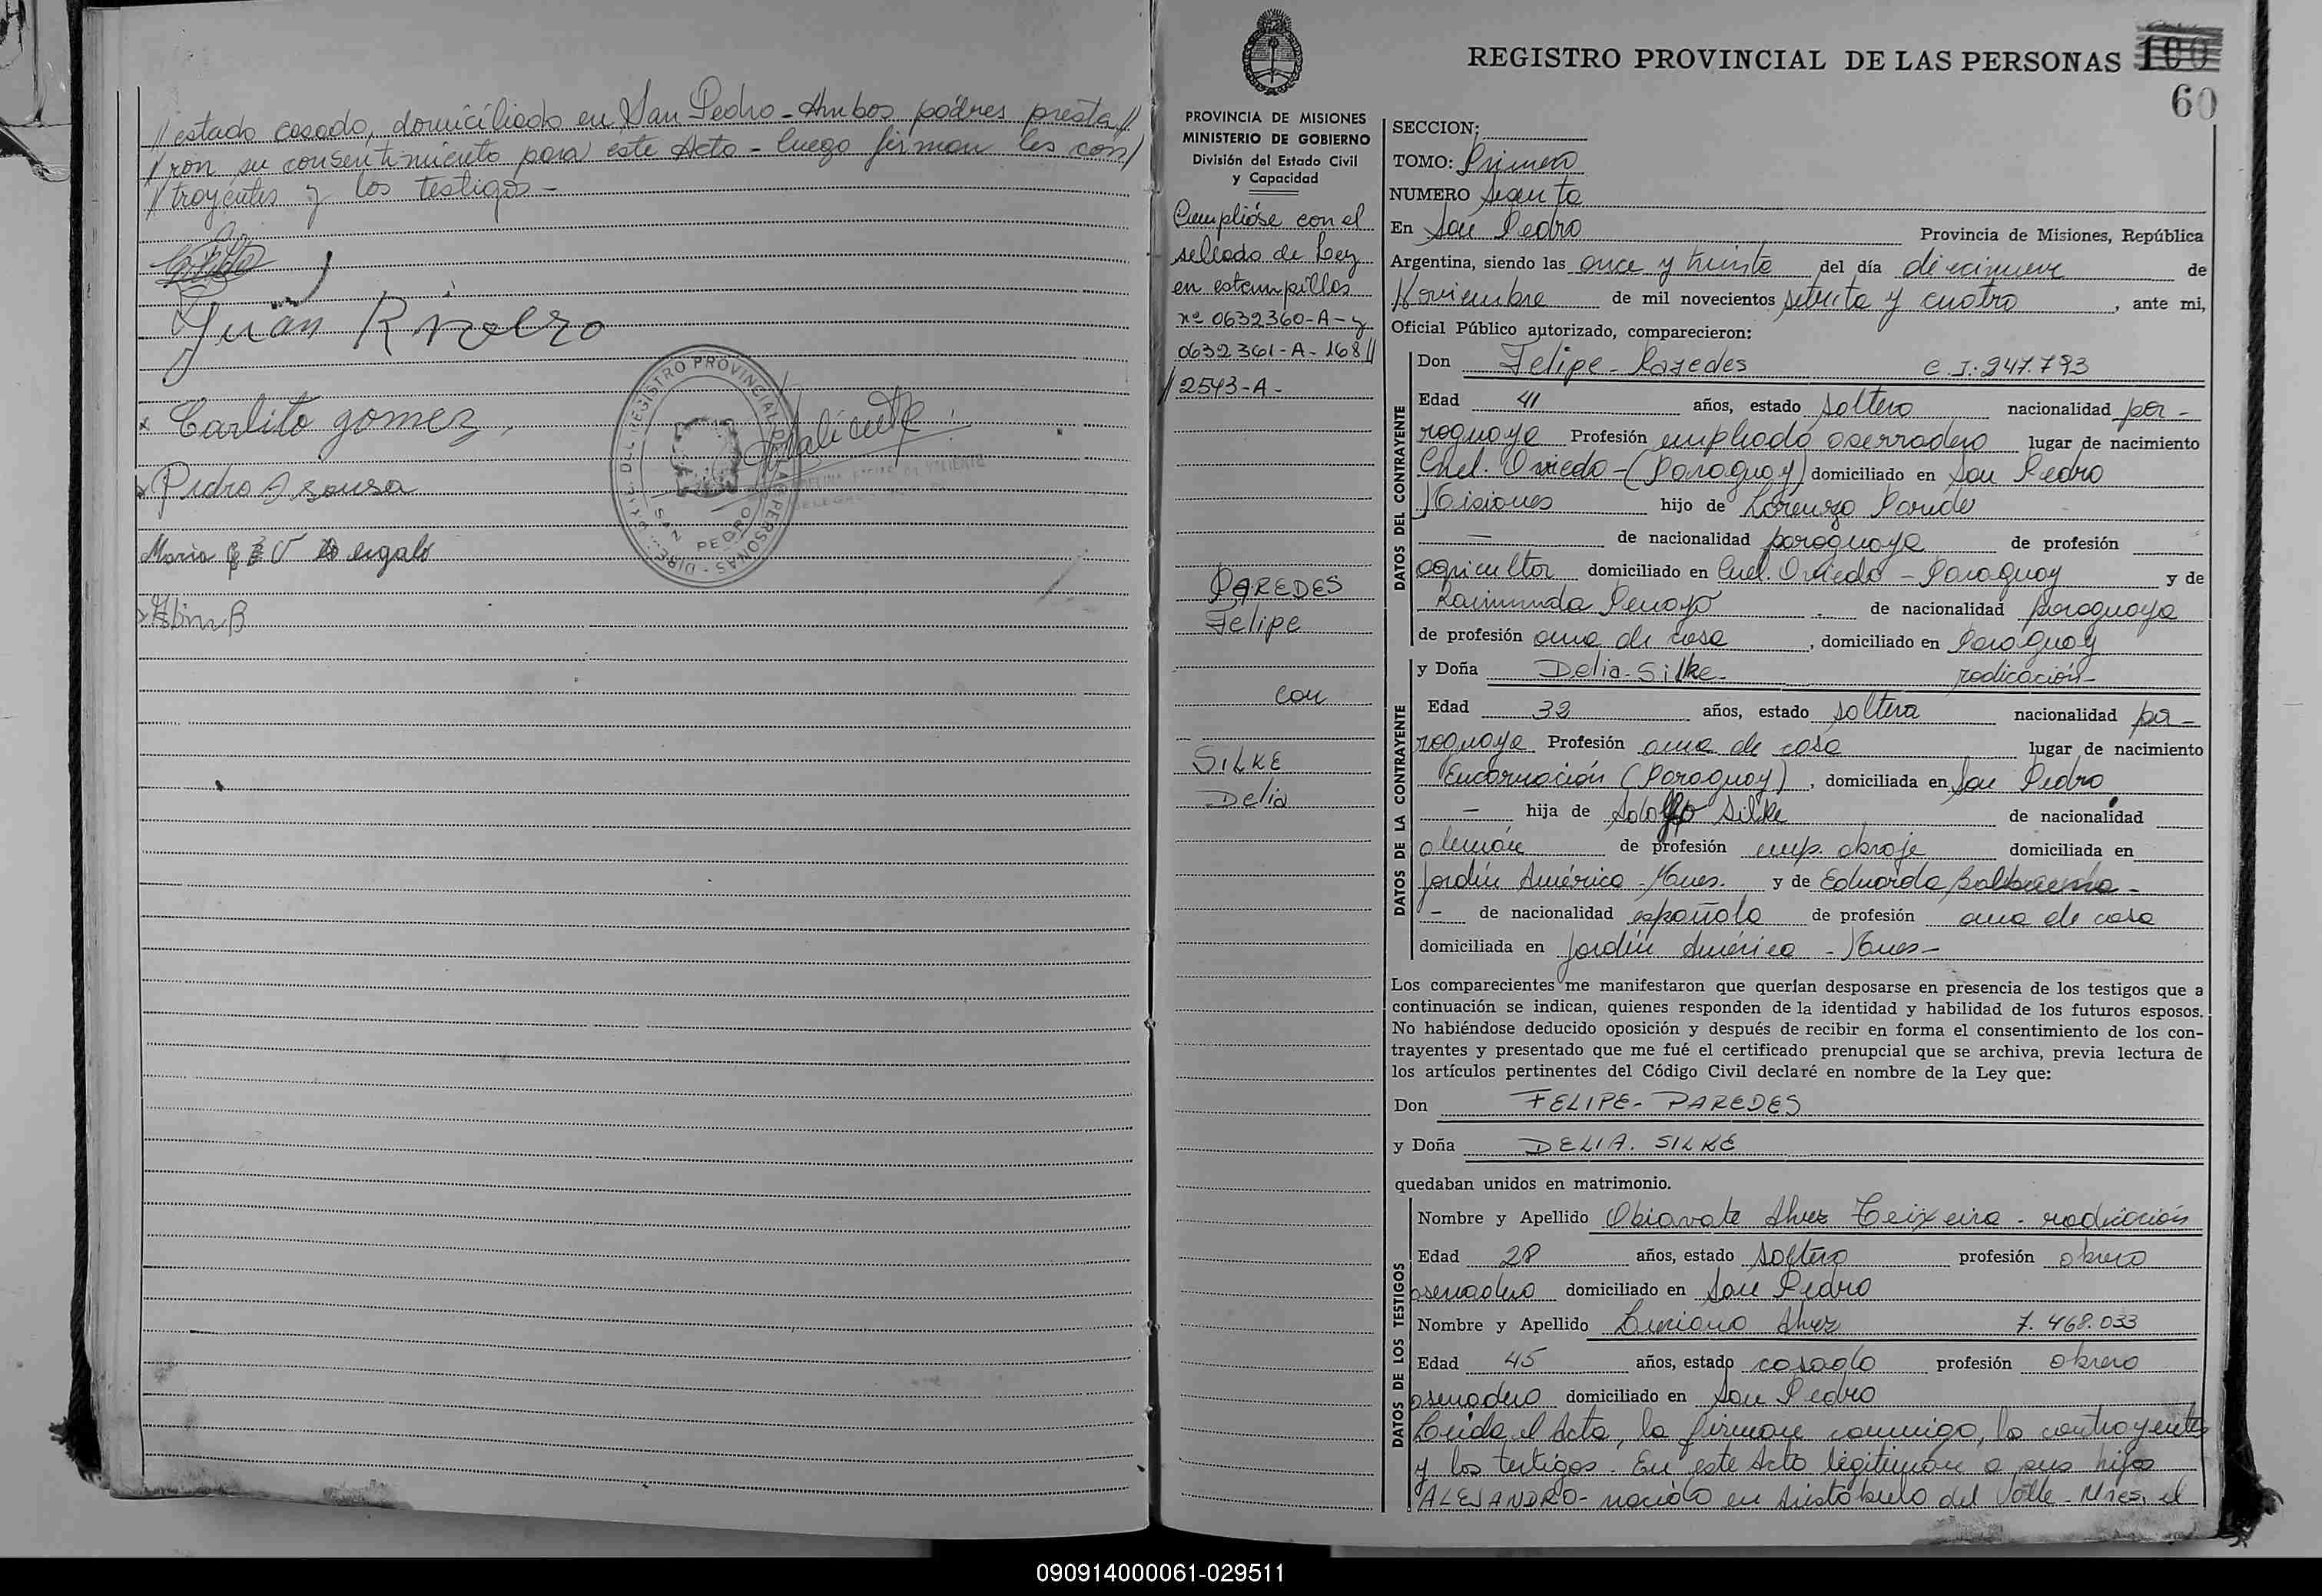 // estado casado, domiciliado en San Pedro - Ambos padres presta//
// ron su consentimiento para este Acto - luego firman los con/
// trayentes y los testigos -
Juan
Carlito gomez
Pedro A sousa
Maria
Albin B
DEL REGISTRO PROVINCIAL DE LAS PERSONAS
SAN PEDRO
REGISTRO PROVINCIAL DE LAS PERSONAS 100
60
PROVINCIA DE MISIONES
MINISTERIO DE GOBIERNO
División del Estado Civil
y Capacidad
Cumplióse con el
sellado de Ley
en estampillas
nº 0632360-A- y
0632361-A-168//
// 2543-A-
PAREDES
Felipe
con
SILKE
Delia
SECCION:
TOMO: Primero
NUMERO Sesenta
En San Pedro Provincia de Misiones, República
Argentina, siendo las once y treinta del día diecinueve de
Noviembre de mil novecientos setenta y cuatro, ante mi,
Oficial Público autorizado, comparecieron:
DATOS DEL CONTRAYENTE
Don Felipe - Paredes C.I. 247.793
Edad 41 años, estado soltero nacionalidad pa-
raguaya Profesión empleado aserradero lugar de nacimiento
Cnel. Oviedo - (Paraguay) domiciliado en San Pedro
Misiones hijo de Lorenzo Parede
— de nacionalidad paraguaya de profesión
agricultor domiciliado en Cnel. Oviedo - Paraguay y de
Raimunda Penayo de nacionalidad paraguaya
de profesión ama de casa, domiciliado en Paraguay
DATOS DE LA CONTRAYENTE
y Doña Delia - Silke - radicación -
Edad 32 años, estado soltera nacionalidad pa-
raguaya Profesión ama de casa lugar de nacimiento
Encarnación (Paraguay), domiciliada en San Pedro
— hija de Adolfo Silke de nacionalidad
alemán de profesión emp. obraje domiciliada en
Jardín América - Mnes. y de Eduarda Balbuena -
— de nacionalidad española de profesión ama de casa
domiciliada en Jardín América - Mnes -
Los comparecientes me manifestaron que querían desposarse en presencia de los testigos que a
continuación se indican, quienes responden de la identidad y habilidad de los futuros esposos.
No habiéndose deducido oposición y después de recibir en forma el consentimiento de los con-
trayentes y presentado que me fué el certificado prenupcial que se archiva, previa lectura de
los artículos pertinentes del Código Civil declaré en nombre de la Ley que:
Don FELIPE - PAREDES
y Doña DELIA. SILKE
quedaban unidos en matrimonio.
DATOS DE LOS TESTIGOS
Nombre y Apellido Alvez Teixeira - radicación
Edad 28 años, estado soltero profesión obrero
aserradero domiciliado en San Pedro
Nombre y Apellido Luciano Alvez 7.468.033
Edad 45 años, estado casado profesión obrero
aserradero domiciliado en San Pedro
Leída el Acta, la firman conmigo, los contrayentes
y los testigos. En este Acto legitiman a sus hijos
ALEJANDRO - nacido en Aristóbulo del Valle - Mnes, el
090914000061-029511